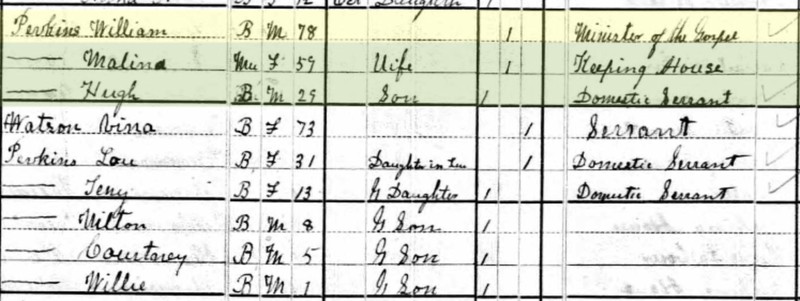 Daughter 1
Perkins William B M 78 1 Minister of the Gospel
—— Malina Mu F 59 Wife 1 Keeping House
—— Hugh B M 29 Son 1 Domestic Servant
Watson Vina B F 73 1 Servant
Perkins Lou B F 31 Daughter in Law 1 Domestic Servant
—— Teny B F 13 G Daughter 1 Domestic Servant
—— Milton B M 8 G Son 1
—— Courtney B M 5 G Son 1
—— Willie B M 1 G Son 1